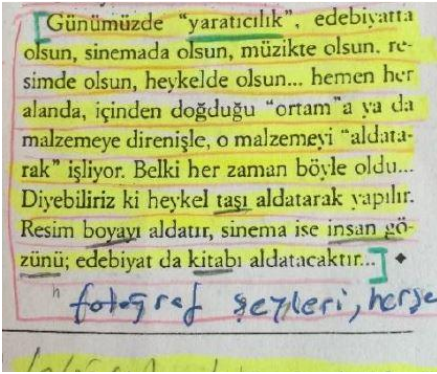 Günümüzde “yaratıcılık”, edebiyatta
olsun, sinemada olsun, müzikte olsun, re-
simde olsun, heykelde olsun... hemen her
alanda, içinden doğduğu “ortam”a ya da
malzemeye direnişle, o malzemeyi “aldata-
rak” işliyor. Belki her zaman böyle oldu...
Diyebiliriz ki heykel taşı aldatarak yapılır.
Resim boyayı aldatır, sinema ise insan gö-
zünü; edebiyat da kitabı aldatacaktır... ◆
fotoğraf şeyleri, herşe